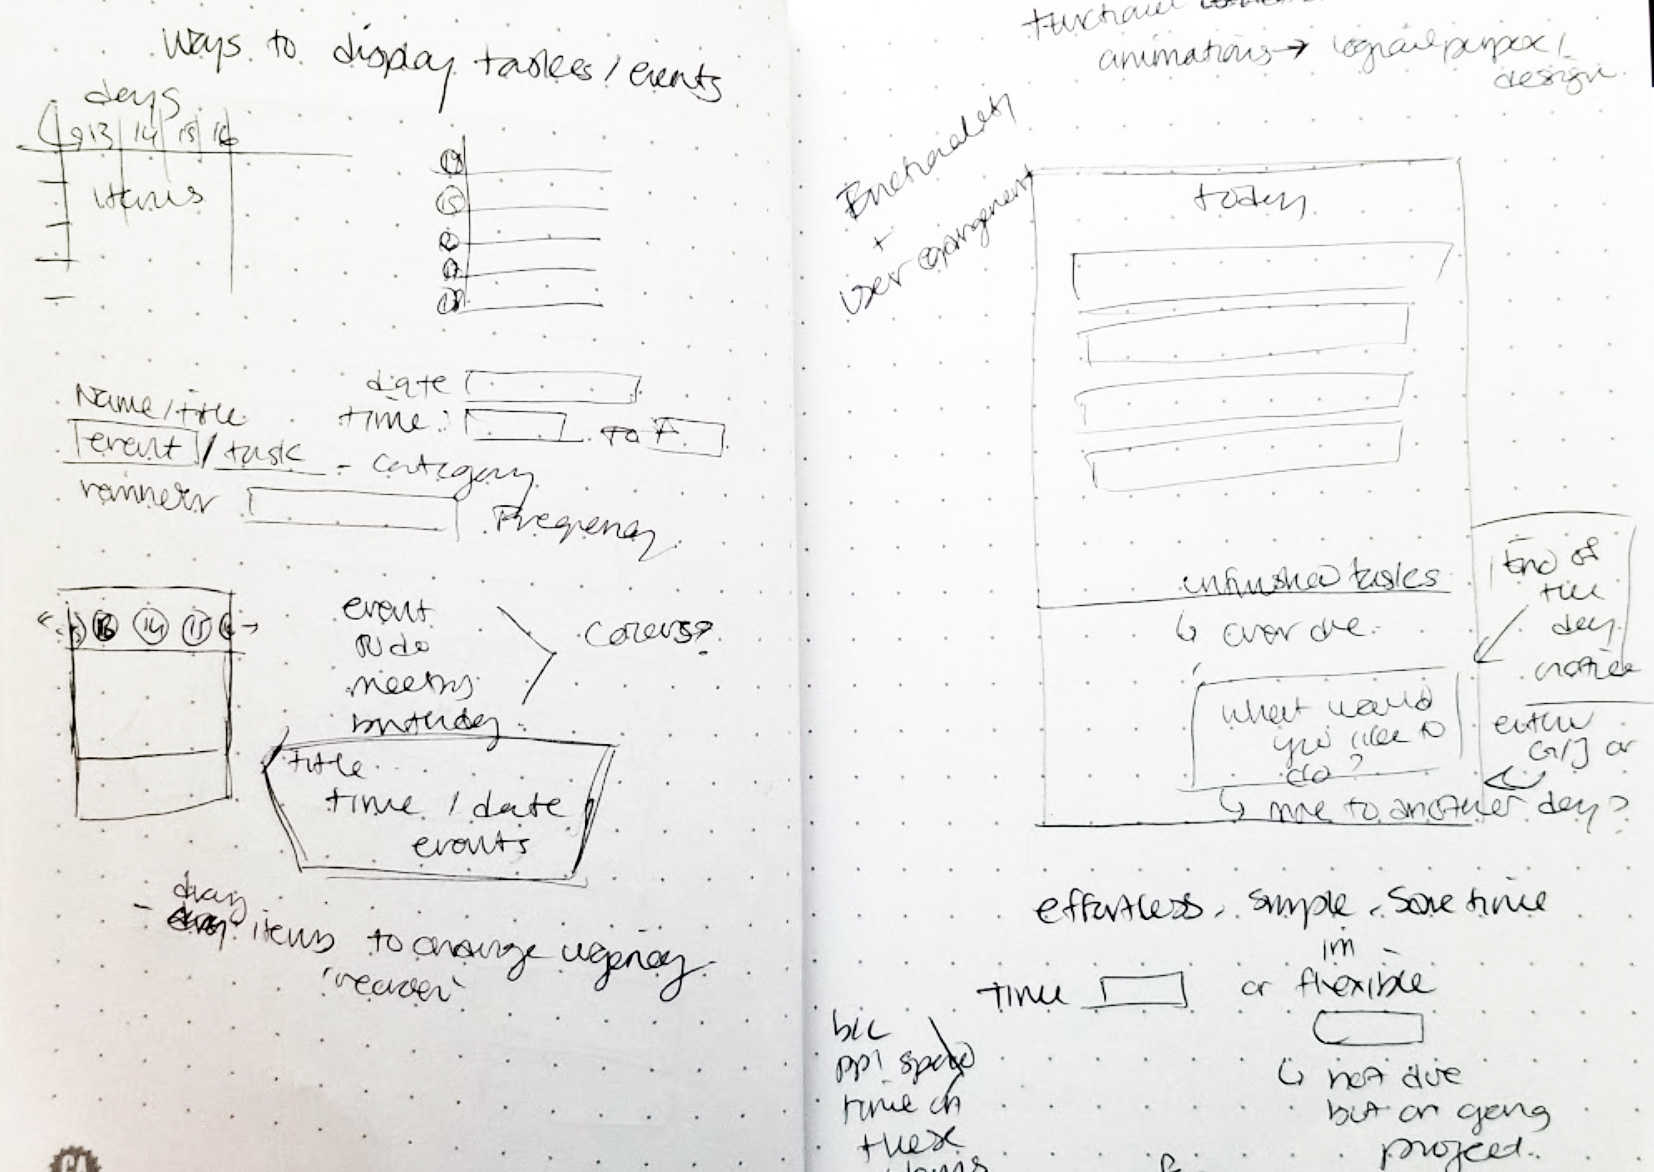 Ways to display tasks / events
days
13 14 15 16
items
14
15
date
time: to
Name / title
event / task - category
Frequency
13 14 15
event
to do
meeting
birthday
colors?
title
time / date
events
- drag items to change urgency
"reorder"
functional
animations → logical purpose /
design
Functionality
+
user
today
unfinished tasks
↳ over due.
what would
you like to
do?
↳ move to another day?
End of
the
day
notice
either
or
effortless, simple, Save time
im
time or flexible
↳ not due
but on going
project.
b/c
ppl spend
time on
these
items